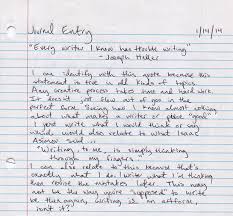 Journal Entry
1/14/14
"Every writer I know has trouble writing."
- Joseph Heller
I can identify with this quote because this
statement is true in all kinds of topics.
Any creative process takes time and hard work.
It doesn't just flow out of you in the
perfect form. Seeing how I know almost nothing
about what makes a writer or poet "good"
I just write what I would think or say
which would also relate to what Isaac
Asimov said...
"Writing, to me, is simply thinking
through my fingers."
I can also relate to this because that's
exactly what I do. I write what I'm thinking
then revise the mistakes later. This may
not be the way you're "supposed" to write
but writing is an artform,
isn't it?